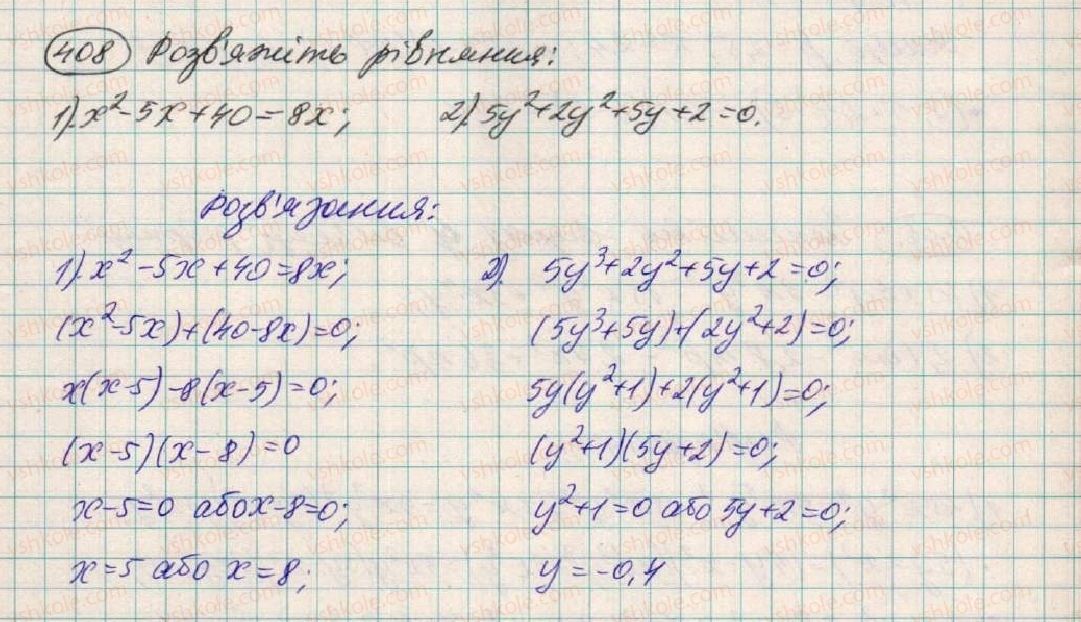 408 Розв'яжіть рівняння:
1). x² - 5x + 40 = 8x; 2). 5y² + 2y² + 5y + 2 = 0.
Розв'язання:
1). x² - 5x + 40 = 8x;
(x² - 5x) + (40 - 8x) = 0;
x(x - 5) - 8(x - 5) = 0;
(x - 5)(x - 8) = 0
x - 5 = 0 або x - 8 = 0;
x = 5 або x = 8;
2). 5y³ + 2y² + 5y + 2 = 0;
(5y³ + 5y) + (2y² + 2) = 0;
5y(y² + 1) + 2(y² + 1) = 0;
(y² + 1)(5y + 2) = 0;
y² + 1 = 0 або 5y + 2 = 0;
y = -0,4